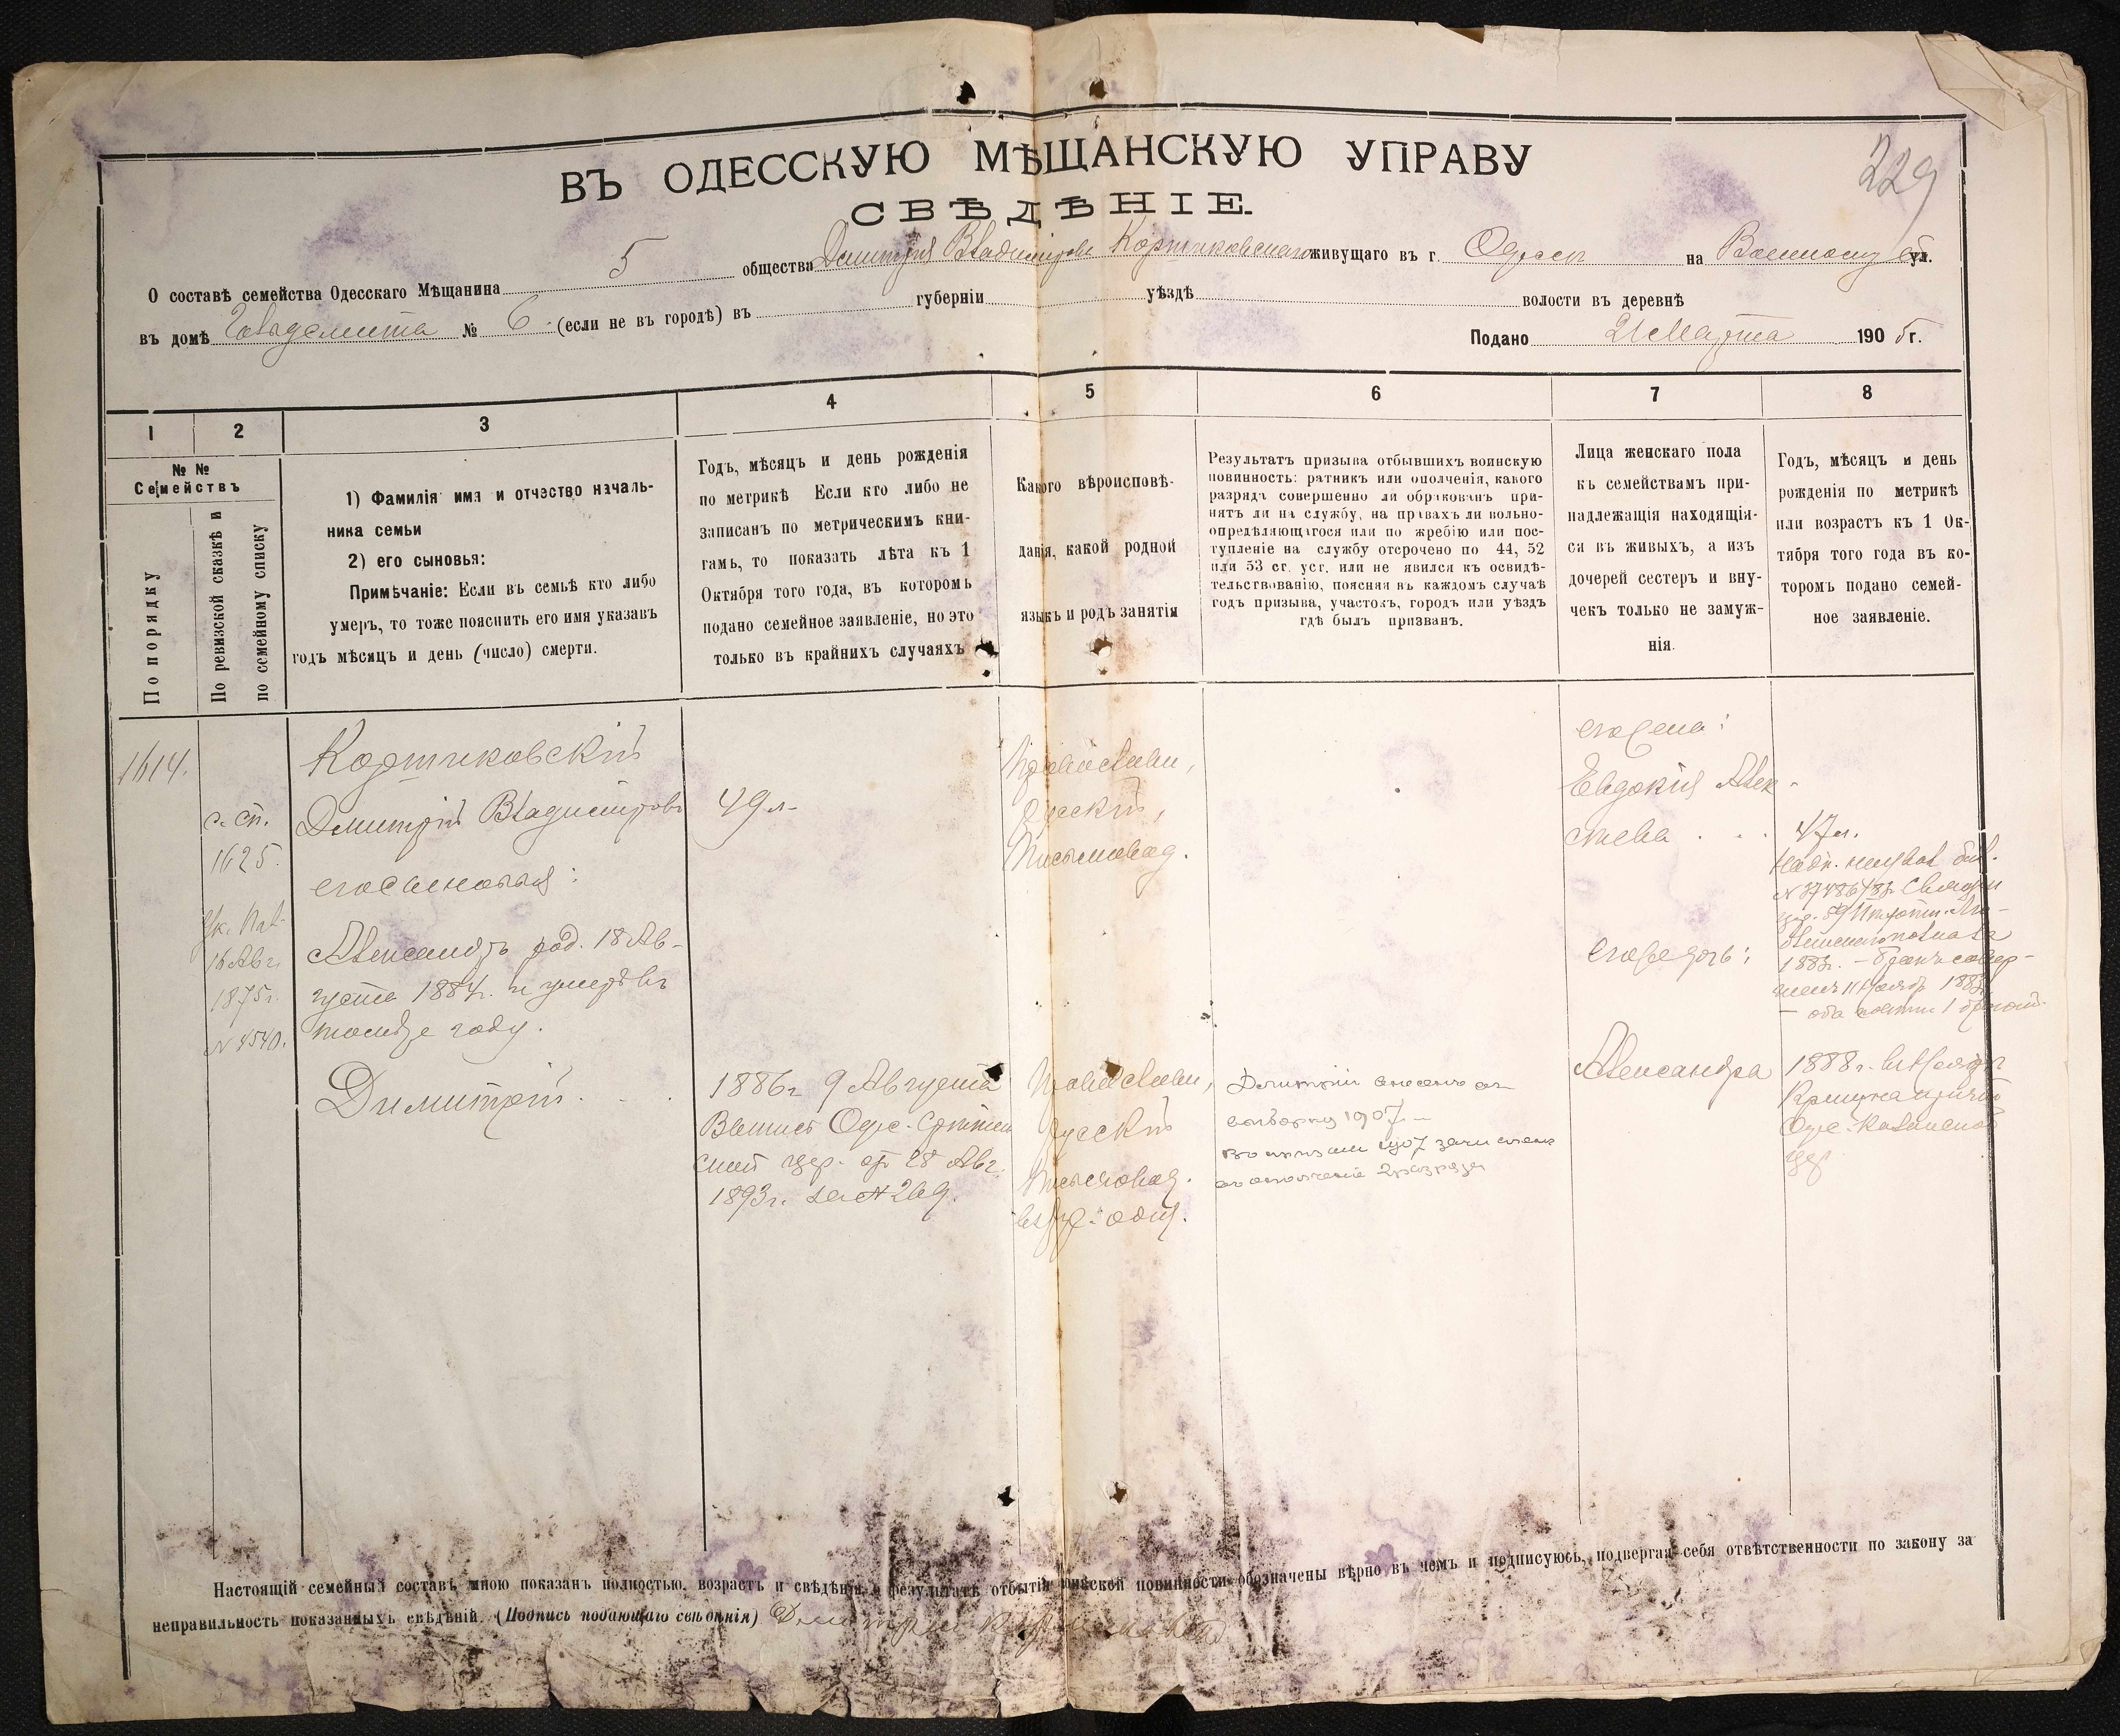 229
ВЪ ОДЕССКУЮ МѢЩАНСКУЮ УПРАВУ
СВѢДѢНІЕ.
О составѣ семейства Одесскаго Мѣщанина 5 общества Дмитрія Владимірова Кортиковскаго живущаго въ г. Одессѣ на ул.
въ домѣ № 6 (если не въ городѣ) въ губерніи уѣздѣ волости въ деревнѣ
Подано 21 Марта 1905 г.
1 2 3 4 5 6 7 8
№ №
Семействъ
По порядку
По ревизской сказкѣ и
по семейному списку
1) Фамилія имя и отчэство началь-
ника семьи
2) его сыновья:
Примѣчаніе: Если въ семьѣ кто либо
умеръ, то тоже пояснить его имя указавъ
годъ мѣсяцъ и день (число) смерти.
Годъ, мѣсяцъ и день рожденія
по метрикѣ Если кто либо не
записанъ по метрическимъ кни-
гамъ, то показать лѣта къ 1
Октября того года, въ которомъ
подано семейное заявленіе, но это
только въ крайнихъ случаяхъ
Какого вѣроисповѣ-
данія, какой родной
языкъ и родъ занятія
Результатъ призыва отбывшихъ воинскую
повинность: ратникъ или ополченія, какого
разрядъ совершенно ли обракованъ при-
нятъ ли на службу, на правахъ ли вольно-
опредѣляющагося или по жребію или пос-
тупленіе на службу отсрочено по 44, 52
или 53 ст. уст. или не явился къ освидѣ-
тельствованію, поясняя въ каждомъ случаѣ
годъ призыва, участокъ, городъ или уѣздъ
гдѣ былъ призванъ.
Лица женскаго пола
къ семействамъ при-
надлежащія находящія-
ся въ живыхъ, а изъ
дочерей сестеръ и вну-
чекъ только не замуж-
нія.
Годъ, мѣсяцъ и день
рожденія по метрикѣ
или возрастъ къ 1 Ок-
тября того года въ ко-
торомъ подано семей-
ное заявленіе.
1614.
с. сп.
1625.
16 Авг.
1875 г.
№ 4540.
Кортиковскій
Дмитрій Владиміровъ
его сыновья:
Александръ род. 18 Ав-
густа 1884 г. и умеръ въ
томъ же году.
Димитрій
49 л.
1886 г. 9 Августа
Выпись Одес. Срѣтен
ской цер. от 28 Авг.
1893 г. за № 269.
Православн,
Русскій,
Письмовод.
Православн,
Русскій
Письмовод.
Дмитрій внесенъ въ
1907
1907 зачисленъ
въ ополченіе 2 разряда
его жена:
Евдокія Алек-
сѣева
его же дочь:
Александра
47 л.
1888 г.
Одес. Казанской
цер.
Настоящій семейный составъ мною показанъ полностью, возрастъ и свѣдѣнія о результатѣ отбытія воинской повинности обозначены вѣрно въ чемъ и подписуюсь, подвергая себя отвѣтственности по закону за
неправильность показанныхъ свѣдѣній. (Подпись подающаго свѣдѣнія) Дмитрій